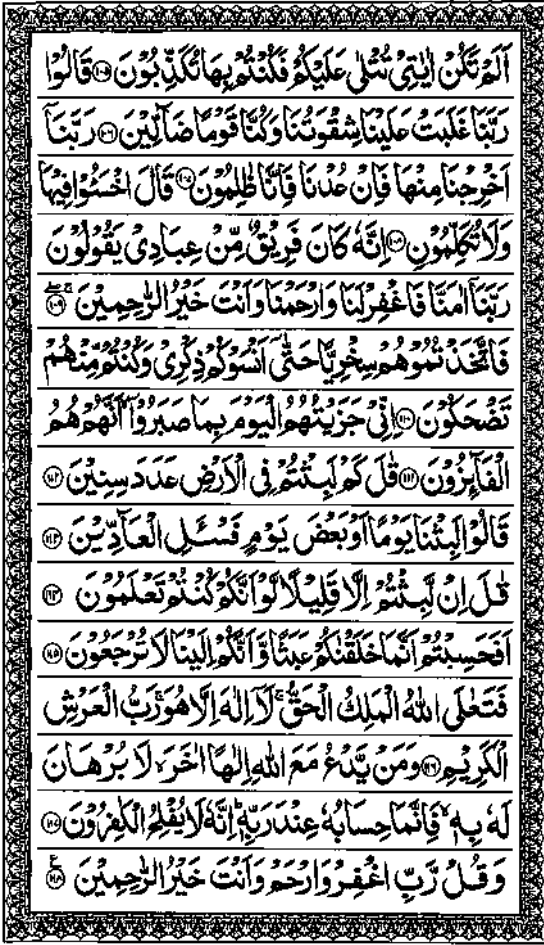 اَلَمْ تَكُنْ اٰيٰتِيْ تُتْلٰى عَلَيْكُمْ فَكُنْتُمْ بِهَا تُكَذِّبُوْنَ ﴿۱۰۵﴾ قَالُوْا
رَبَّنَا غَلَبَتْ عَلَيْنَا شِقْوَتُنَا وَكُنَّا قَوْمًا ضَآلِّيْنَ ﴿۱۰۶﴾ رَبَّنَآ
اَخْرِجْنَا مِنْهَا فَاِنْ عُدْنَا فَاِنَّا ظٰلِمُوْنَ ﴿۱۰۷﴾ قَالَ اخْسَـُٔوْا فِيْهَا
وَلَا تُكَلِّمُوْنِ ﴿۱۰۸﴾ اِنَّهٗ كَانَ فَرِيْقٌ مِّنْ عِبَادِيْ يَقُوْلُوْنَ
رَبَّنَآ اٰمَنَّا فَاغْفِرْ لَنَا وَارْحَمْنَا وَاَنْتَ خَيْرُ الرّٰحِمِيْنَ ﴿۱۰۹﴾
فَاتَّخَذْتُمُوْهُمْ سِخْرِيًّا حَتّٰٓى اَنْسَوْكُمْ ذِكْرِيْ وَكُنْتُمْ مِّنْهُمْ
تَضْحَكُوْنَ ﴿۱۱۰﴾ اِنِّيْ جَزَيْتُهُمُ الْيَوْمَ بِمَا صَبَرُوْٓا اَنَّهُمْ هُمُ
الْفَآئِزُوْنَ ﴿۱۱۱﴾ قٰلَ كَمْ لَبِثْتُمْ فِي الْاَرْضِ عَدَدَ سِنِيْنَ ﴿۱۱۲﴾
قَالُوْا لَبِثْنَا يَوْمًا اَوْ بَعْضَ يَوْمٍ فَسْـَٔلِ الْعَآدِّيْنَ ﴿۱۱۳﴾
قٰلَ اِنْ لَّبِثْتُمْ اِلَّا قَلِيْلًا لَّوْ اَنَّكُمْ كُنْتُمْ تَعْلَمُوْنَ ﴿۱۱۴﴾
اَفَحَسِبْتُمْ اَنَّمَا خَلَقْنٰكُمْ عَبَثًا وَّاَنَّكُمْ اِلَيْنَا لَا تُرْجَعُوْنَ ﴿۱۱۵﴾
فَتَعٰلَى اللّٰهُ الْمَلِكُ الْحَقُّ ۚ لَآ اِلٰهَ اِلَّا هُوَ ۚ رَبُّ الْعَرْشِ
الْكَرِيْمِ ﴿۱۱۶﴾ وَمَنْ يَّدْعُ مَعَ اللّٰهِ اِلٰهًا اٰخَرَ ۙ لَا بُرْهَانَ
لَهٗ بِهٖ ۙ فَاِنَّمَا حِسَابُهٗ عِنْدَ رَبِّهٖ ؕ اِنَّهٗ لَا يُفْلِحُ الْكٰفِرُوْنَ ﴿۱۱۷﴾
وَقُلْ رَّبِّ اغْفِرْ وَارْحَمْ وَاَنْتَ خَيْرُ الرّٰحِمِيْنَ ﴿۱۱۸﴾ ع